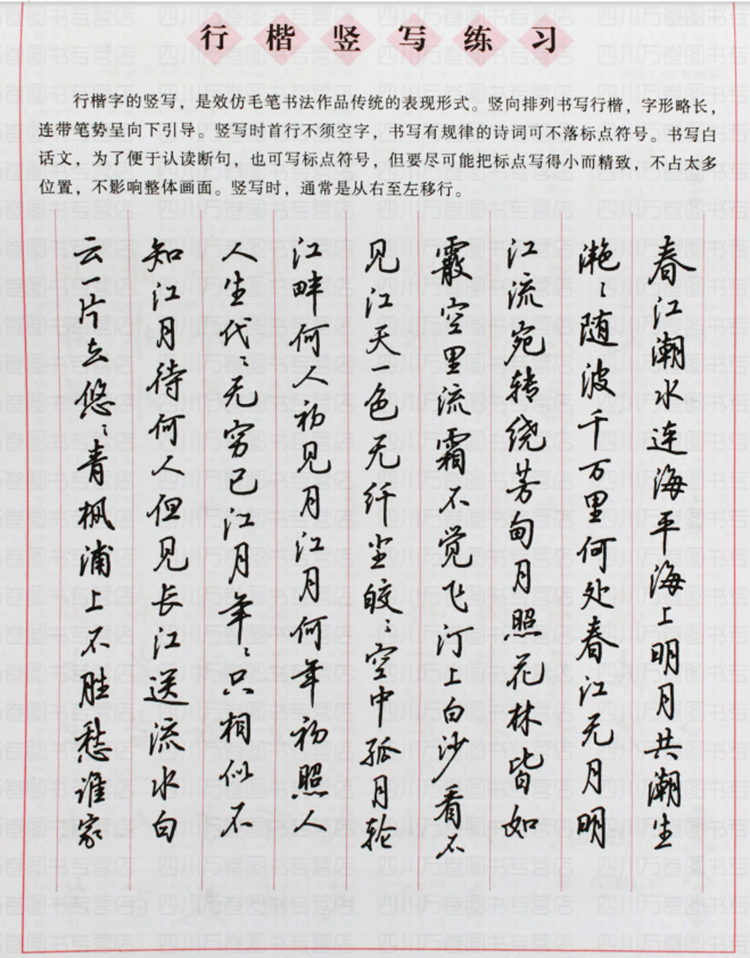 行楷竖写练习
行楷字的竖写，是效仿毛笔书法作品传统的表现形式。竖向排列书写行楷，字形略长，
连带笔势呈向下引导。竖写时首行不须空字，书写有规律的诗词可不落标点符号。书写白
话文，为了便于认读断句，也可写标点符号，但要尽可能把标点写得小而精致，不占太多
位置，不影响整体画面。竖写时，通常是从右至左移行。
春江潮水连海平海上明月共潮生
滟随波千万里何处春江无月明
江流宛转绕芳甸月照花林皆如
霰空里流霜不觉飞汀上白沙看不
见江天一色无纤尘皎々空中孤月轮
江畔何人初见月江月何年初照人
人生代々无穷已江月年々只相似不
知江月待何人但见长江送流水白
云一片去悠々青枫浦上不胜愁谁家
四川万卷图书专营店